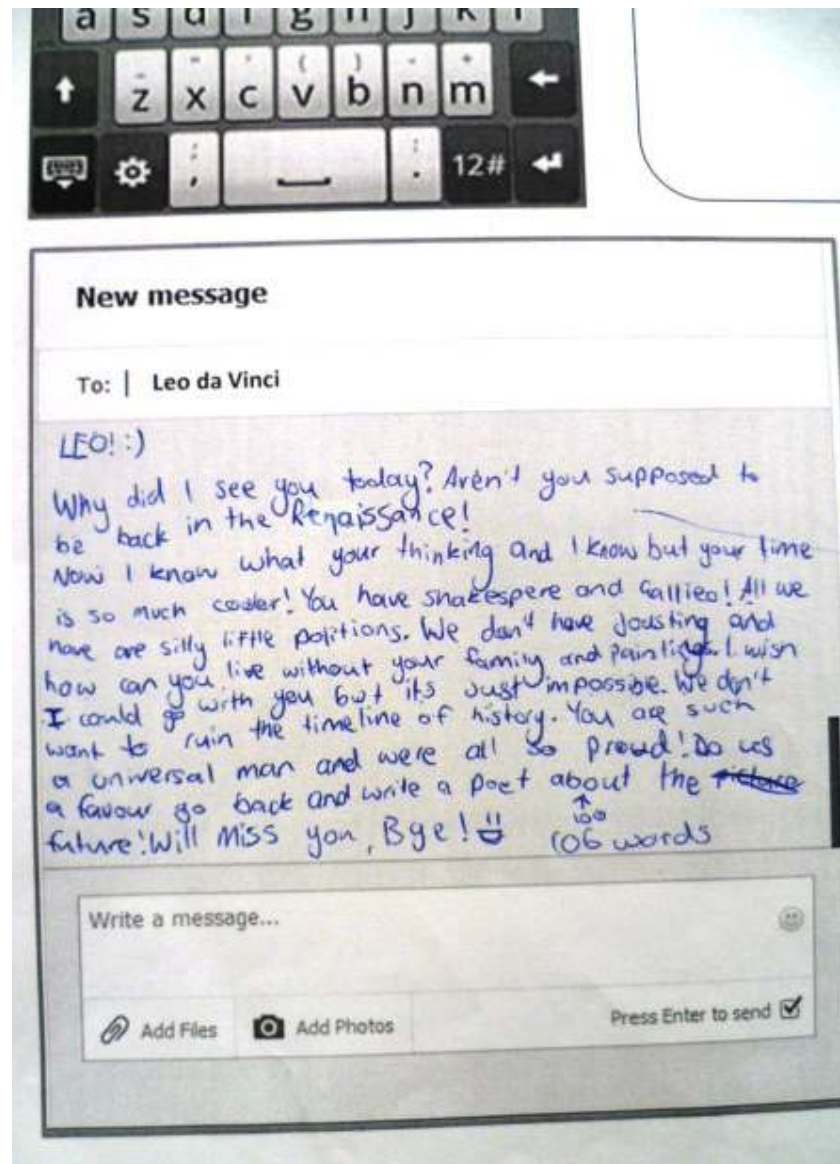 a s d f g h j k l
_ " ' ( ) - +
z x c v b n m
: ; , . 12#
New message
To: | Leo da Vinci
LEO! :)
Why did I see you today? Aren't you supposed to
be back in the Renaissance!
Now I know what your thinking and I know but your time
is so much cooler! You have shakespere and Gallieo! All we
have are silly little politions. We don't have jousting and
how can you live without your family and paintings. I wish
I could go with you but its just impossible. We don't
want to ruin the timeline of history. You are such
a universal man and were all so proud! Do us
a favour go back and write a poet about the picture
future! Will miss you, Bye!
↑
100
106 words
Write a message...
Add Files
Add Photos
Press Enter to send